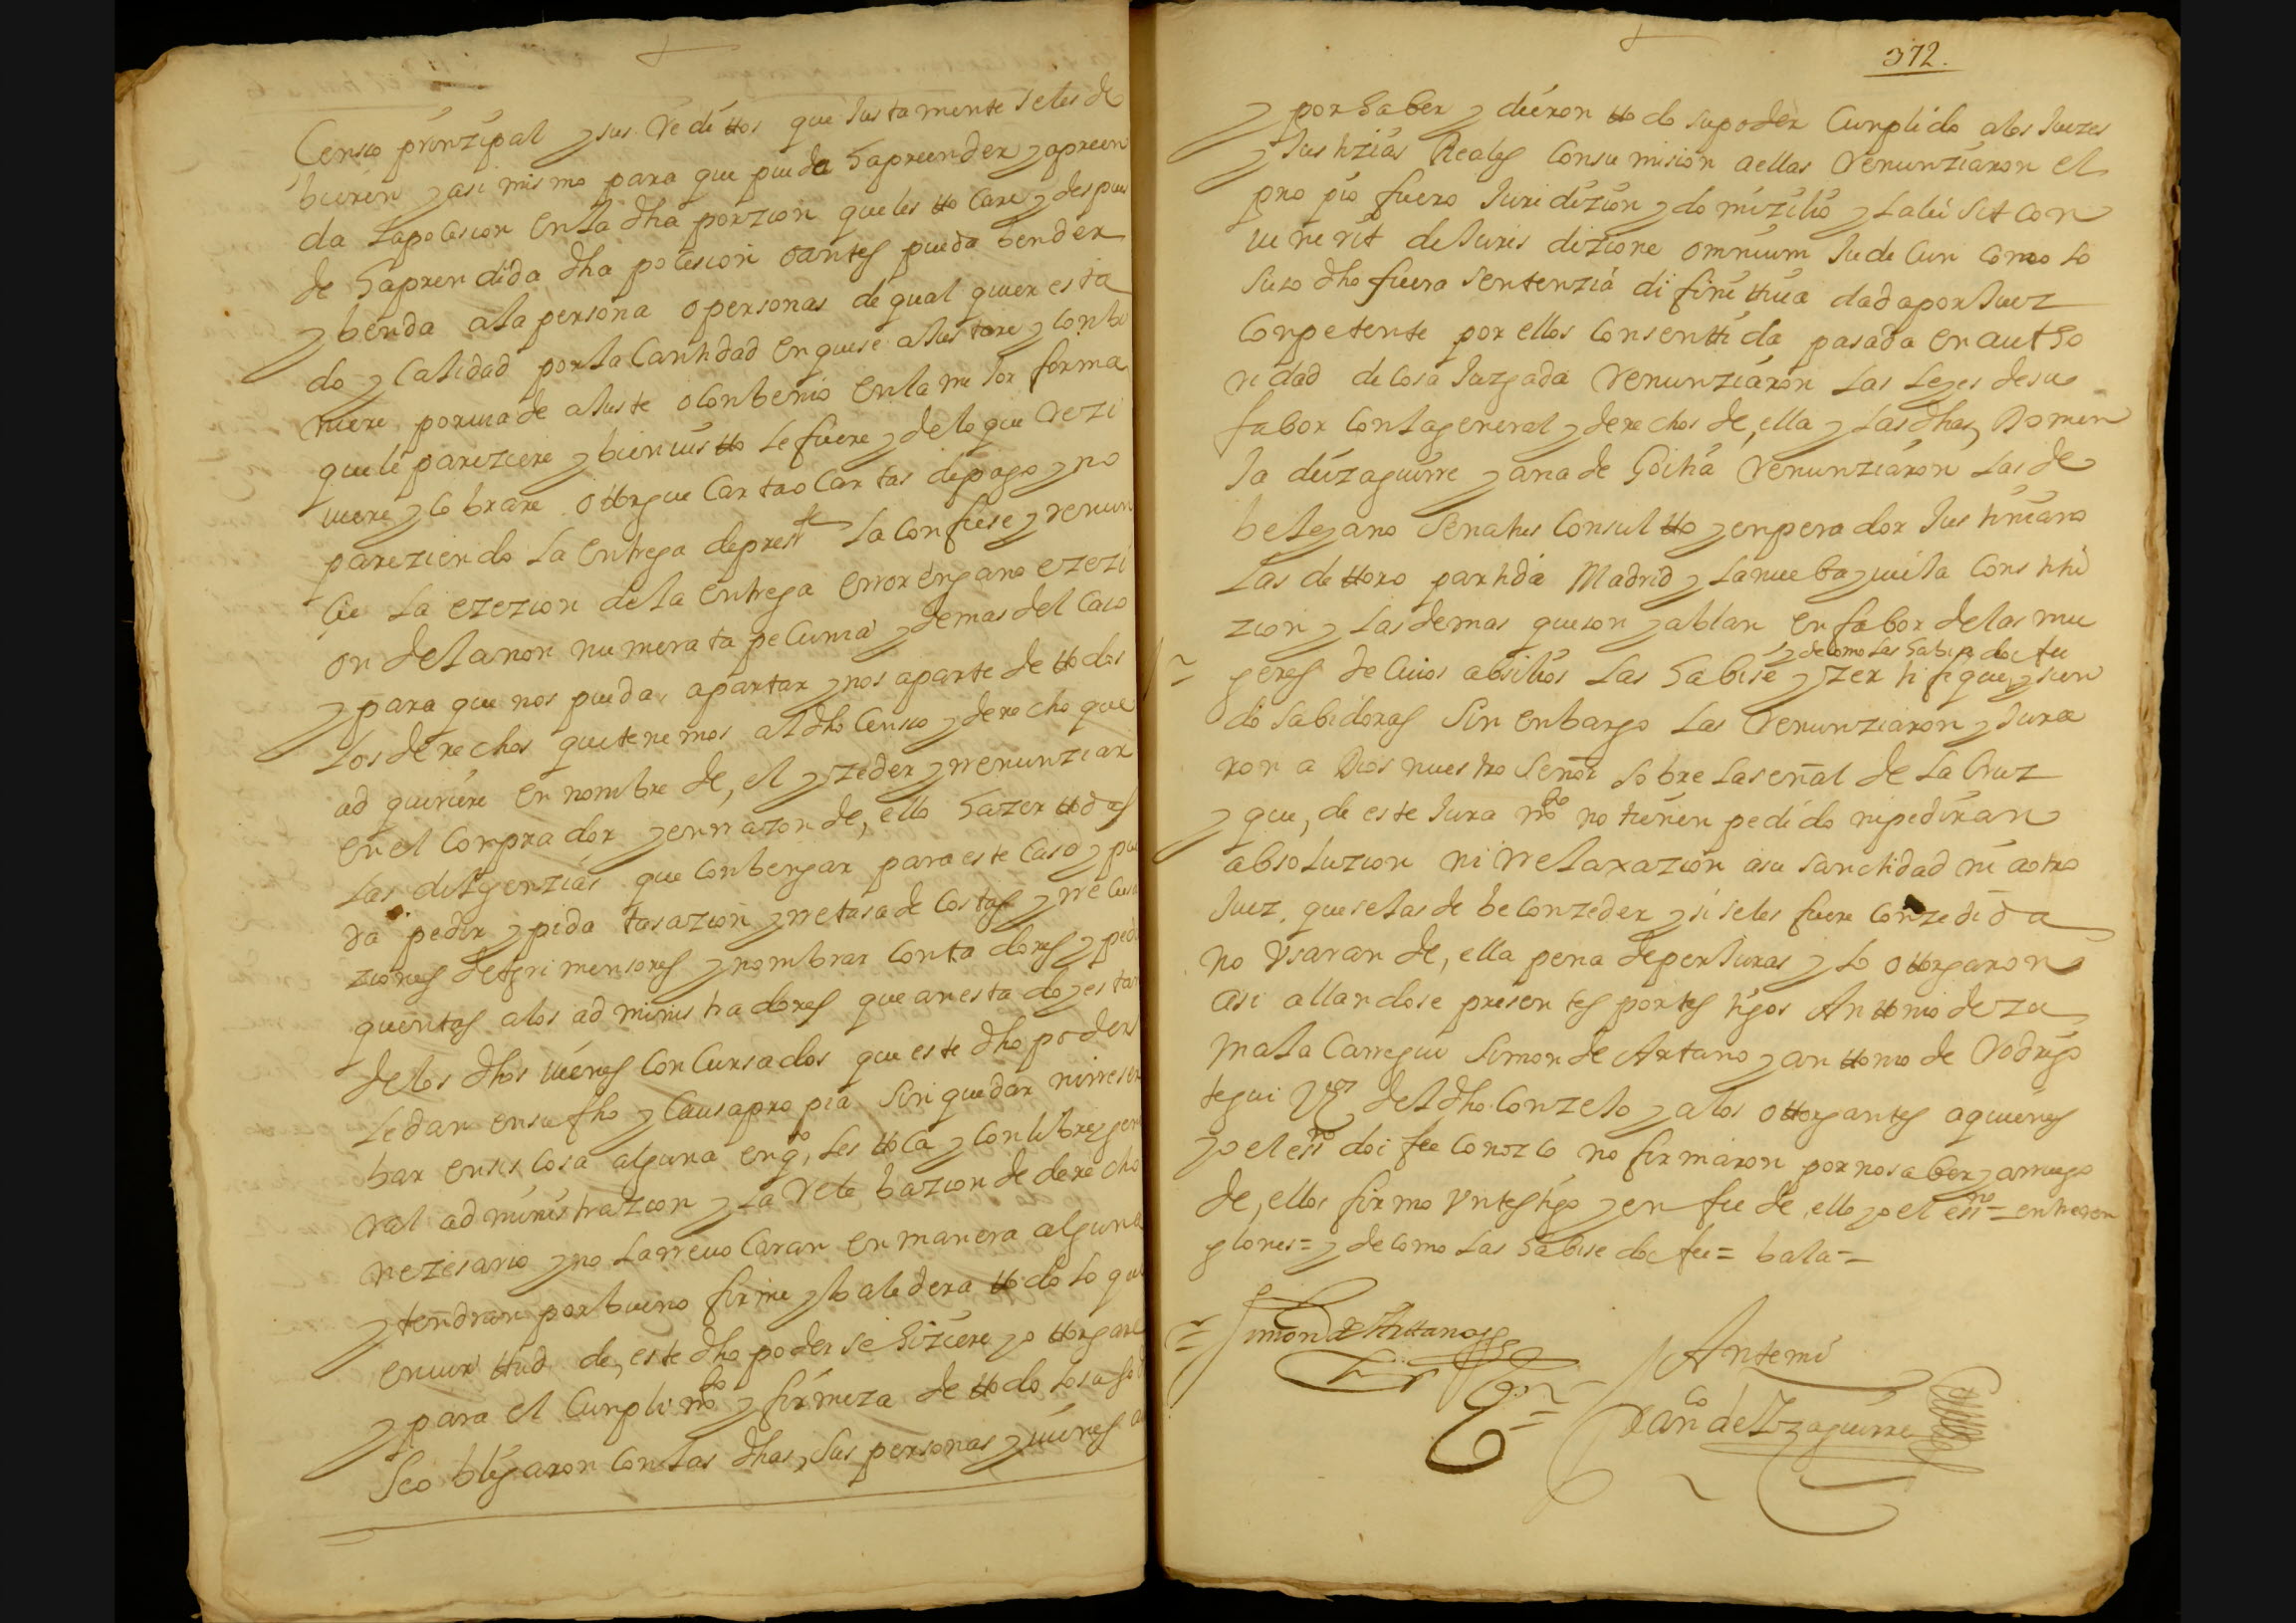 Censo prinzipal y sus Redittos que Justamente se les de
bieren y asi mismo para que pueda Haprender y apreen
da la posesion en la dha porzion que les ttocare y despues
de Haprendida dha posesion o antes pueda bender
y benda a la persona o personas de qualquier esta
do y Calidad por la Cantidad en que se aJustare y conbi
niere por via de aJuste o Conbenio en la meJor forma
que le pareziere y bien vistto le fuere y de lo que rezi
viere y cobrare ottorgue Carta o Cartas de pago y no
pareziendo la entrega de prest^te la confiese y renun
cie la ezezion de la entrega error engano ezezi
on de la non numerata pecunia y demas del Caso
y para que nos pueda, apartar y nos aparte de ttodos
los derechos que tenemos al dho Censo y derecho que
adquiriere en nombre de, el y zeder y rrenunziar
en el Comprador y en rrazon de, ello Hazer ttodas
las diligenzias que conbengan para este Caso y pue
da pedir y pida tasazion y rretasa de costas y rrecusa
ziones de agrimensores y nombrar contadores y pedir
quentas a los administradores que an estado y estan
de los dhos vienes Concursados que este dho poder
le dan en su fho y Causa propia sin quedar ni rreser
bar en sis cosa alguna en q^to, les ttoca y con libre y gene
ral administrazion y la relebazion de derecho
nezesario y no la rrevocaran en manera alguna
y tendran por bueno firme y baledera ttodo lo que
en virttud de, este dho poder se Hiziere y ottorgare
y para el Cunplim^to y firmeza de ttodo lo suso dho
se obligaron con las dhas, sus personas y vienes
372.
y por Haber y dieron ttodo su poder Cunplido a los Juezes
y Justizias Reales con sumision a ellas renunziaron el
propio fuero Juridizion y domizilio y la lei sit con
venerit de Juris dizione omnium Judicun como lo
suso dho fuera sentenzia difinittiva dada por Juez
conpetente por ellos consenttida pasada en autho
ridad de cosa Juzgada renunziaron las leyes de su
fabor con la general y derechos de, ella y las dhas, Domin
Ja de Yzaguirre y ana de Goitia renunziaron las de
beleyano senatus consultto y enperador Justiniano
las de ttoro partida Madrid y la nueba y vieja constitu
zion y las demas que son y ablan en fabor de las mu
y de como las Habise doi fee
geres de cuios absilios las Habise y zertifique, y sien
do sabidoras sin enbargo las renunziaron y Jura
ron a Dios nuestro señor sobre la señal de la Cruz
y que, de este Juram^to no tienen pedido ni pediran
absoluzion ni rrelaxazion a su sanctidad ni a otro
Juez, que se las debe conzeder y si se les fuere conzedida
no Usaran de, ella pena de perJuras y lo ottorgaron
asi allandose presentes por testigos Anttonio de za
mala Carregui Simon de Arttano y anttonio de Rodrigo
tegui Vz^os del dho Conzejo y a los ottorgantes a quienes
yo el ess^no doi fee conozco no firmaron por no saber y a rruego
de, ellos firmo Un testigo y en fee de, ello yo el ess^no = entre ren
glones = y de como las Habise doi fee = bala =
Simon de Arttano
Ante mi
Fran^co de Yzaguirre